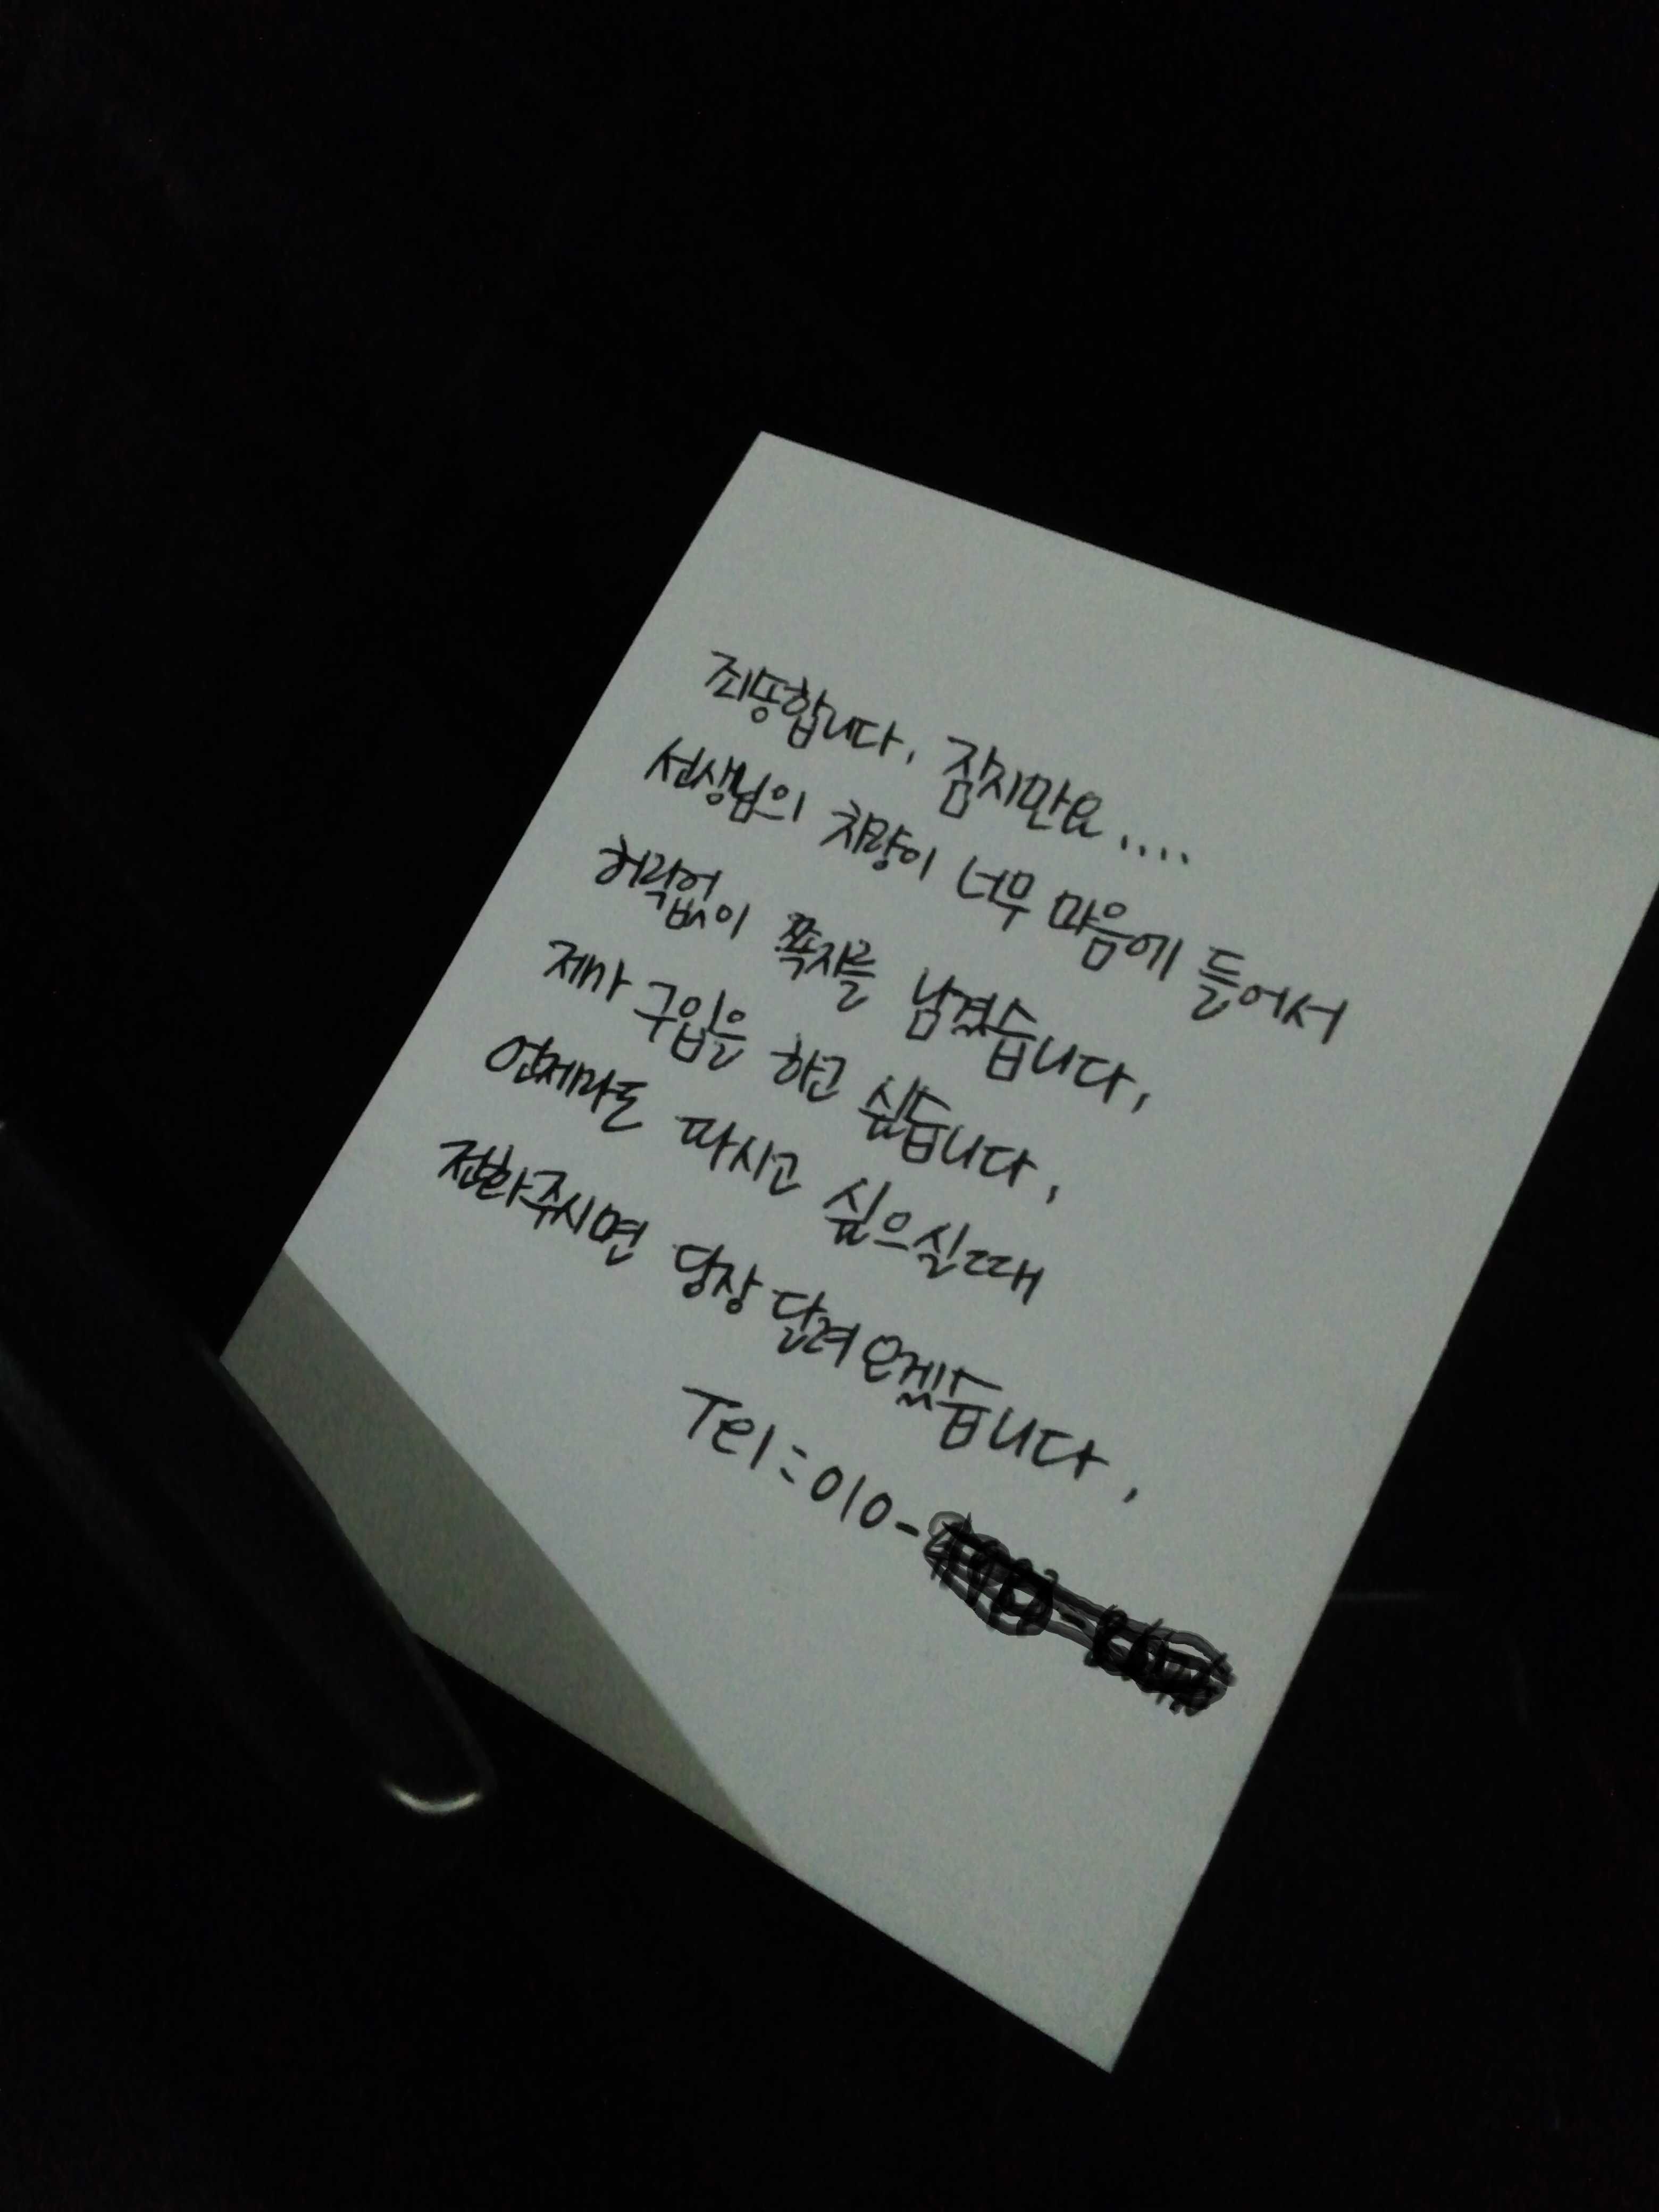 죄송합니다. 잠시만요....
선생님의 차량이 너무 마음에 들어서
허락없이 쪽지를 남겼습니다.
제가 구입을 하고 싶습니다.
언제라도 파시고 싶으실때
전화주시면 당장 달려오겠습니다.
Tel: 010-